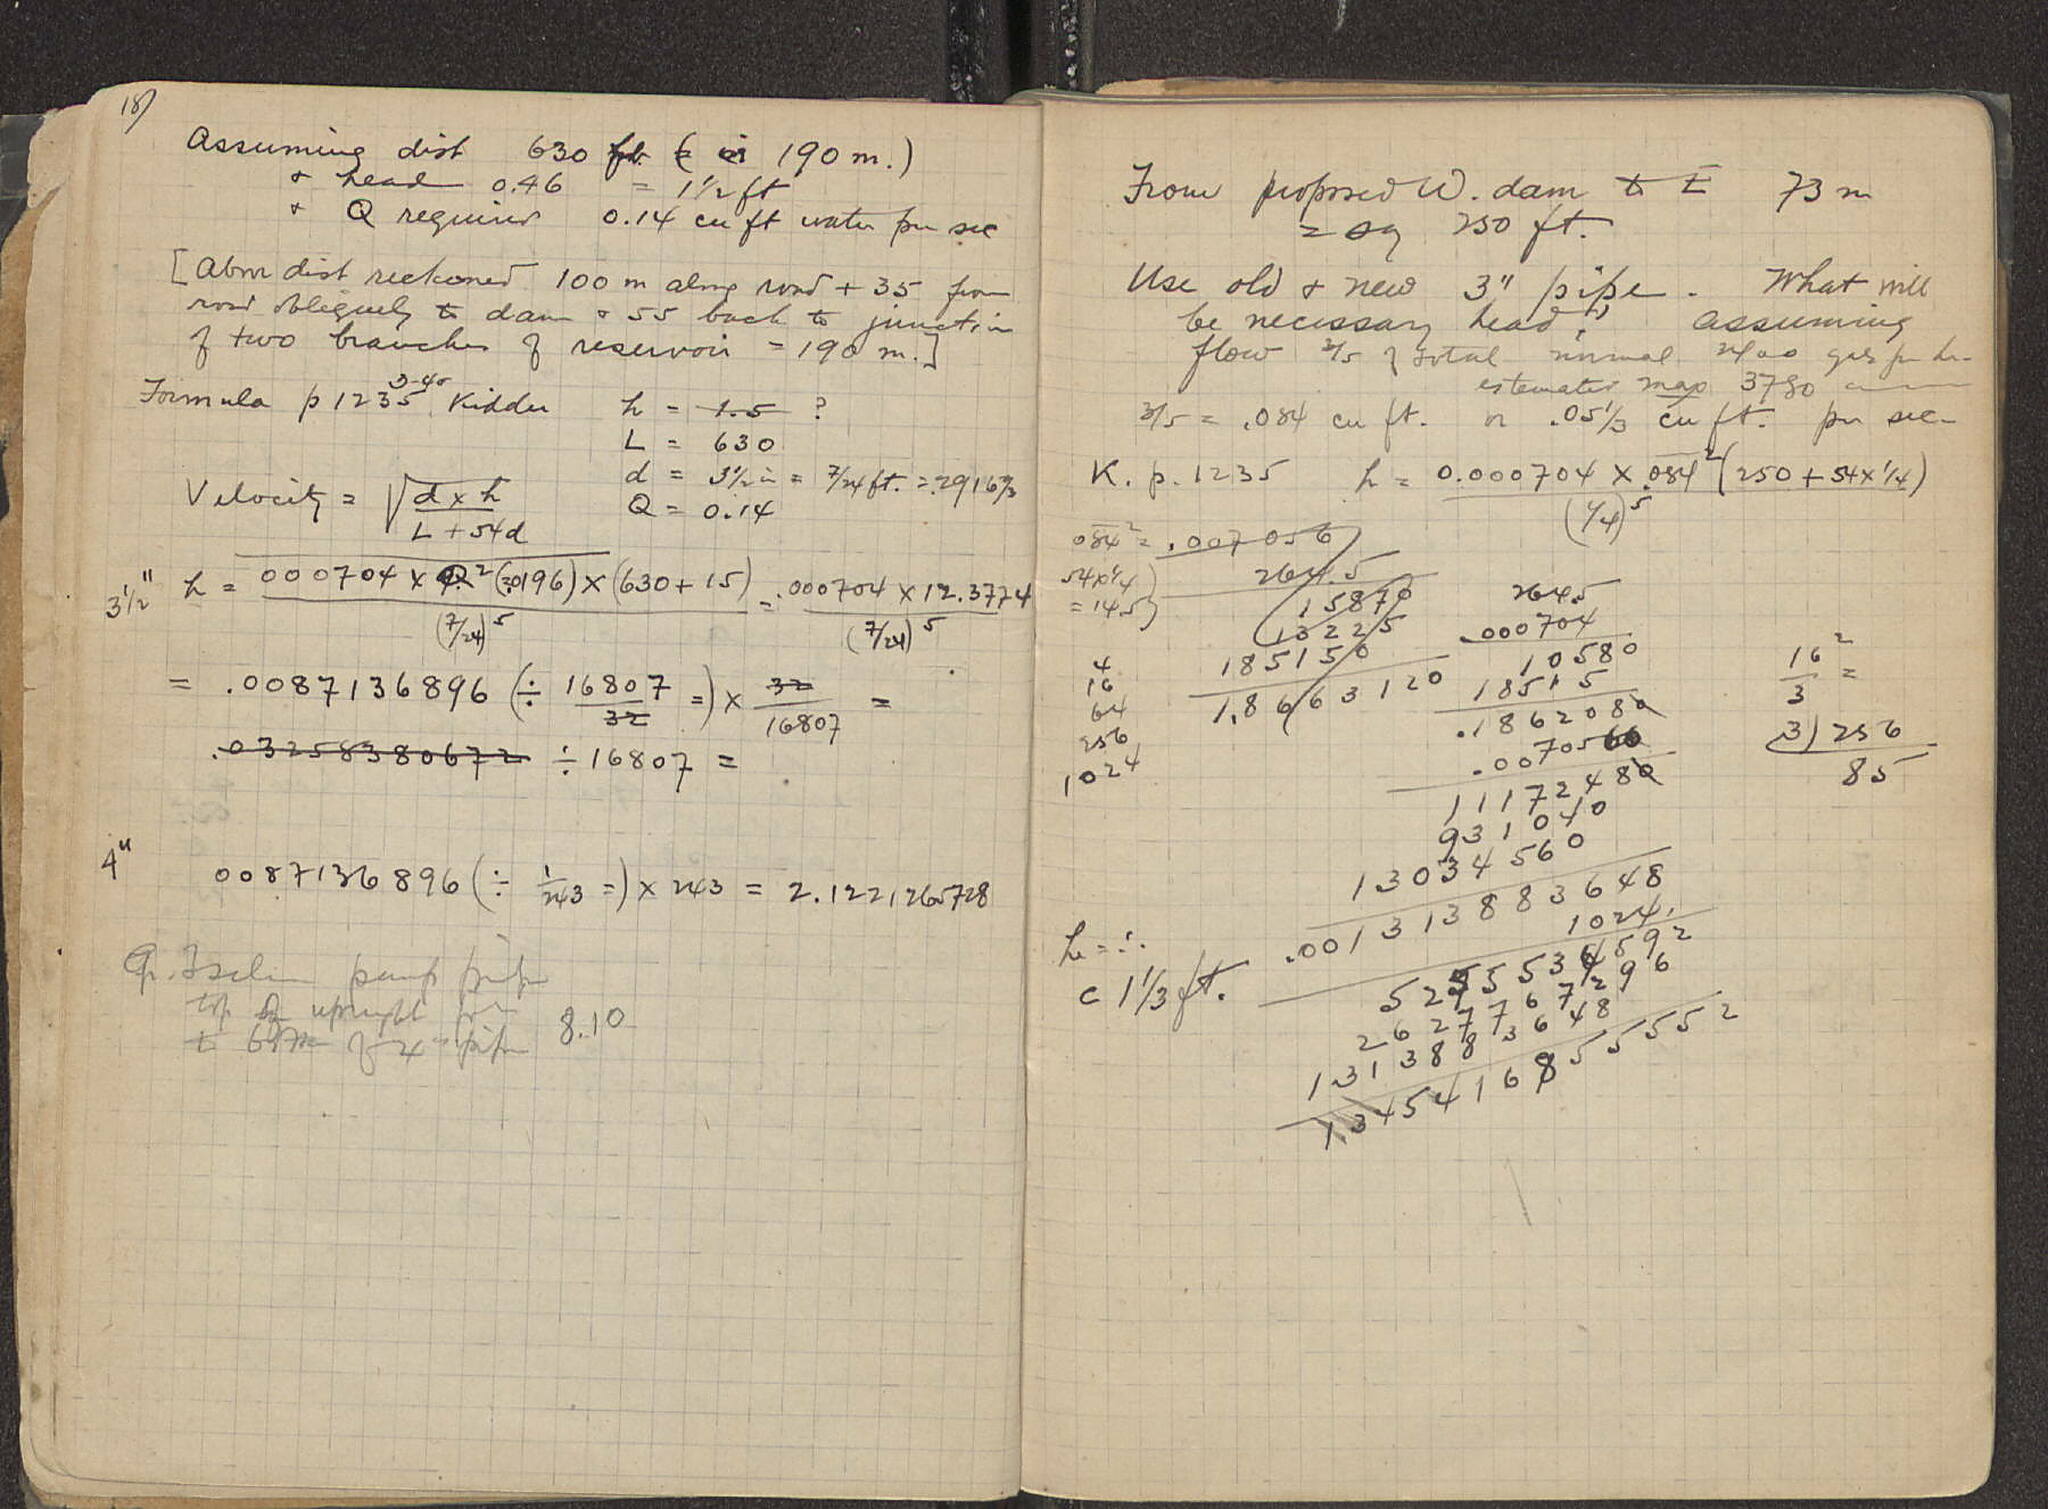 18)
Assuming dist 630 ft (= or 190 m.)
+ head 0.46 = 1 1/2 ft
+ Q required 0.14 cu ft water per sec
[Above dist reckoned 100 m along road + 35 from
road obliquely to dam + 55 back to junction
of two branches of reservoir = 190 m.]
Formula p 1235 Kidder h = 1.5 ?
L = 630
d = 3 1/2 in = 7/24 ft. = .29167/3
Velocity = √ d x h / L + 54d
Q = 0.14
3 1/2" h = 000704 x Q² (.0196) x (630 + 15) / (7/24)⁵ = .000704 x 12.3774 / (7/24)⁵
= .0087136896 (÷ 16807/32 =) x 32/16807 =
.03258380672 ÷ 16807 =
4" 0087136896 (÷ 1/243 =) x 243 = 2.1221265728
pump pipe
top of upright
to of 4" pipe 8.10
From proposed W. dam to E 73 m
= say 250 ft.
Use old + new 3" pipe. What will
be necessary head? Assuming
flow 3/5 of total normal 2400 gals per hr
estimated max 3780
3/5 = .084 cu ft. or .05 1/3 cu ft. per sec
K. p. 1235 h = 0.000704 x .084² (250 + 54 x 1/4) / (1/4)⁵
084² = .007056
54 x 1/4 } 264.5
= 14.5 } 15870
13225
185150
1.8663120
4
16
64
256
1024
264.5
.000704
10580
18515
.1862080
.007056
11172480
931040
13034560
.00131388 3648
1024
5255534592
2627767296
1313883648
1.3454168 5552
h = ∴
c 1 1/3 ft.
16² / 3 =
3) 256
85